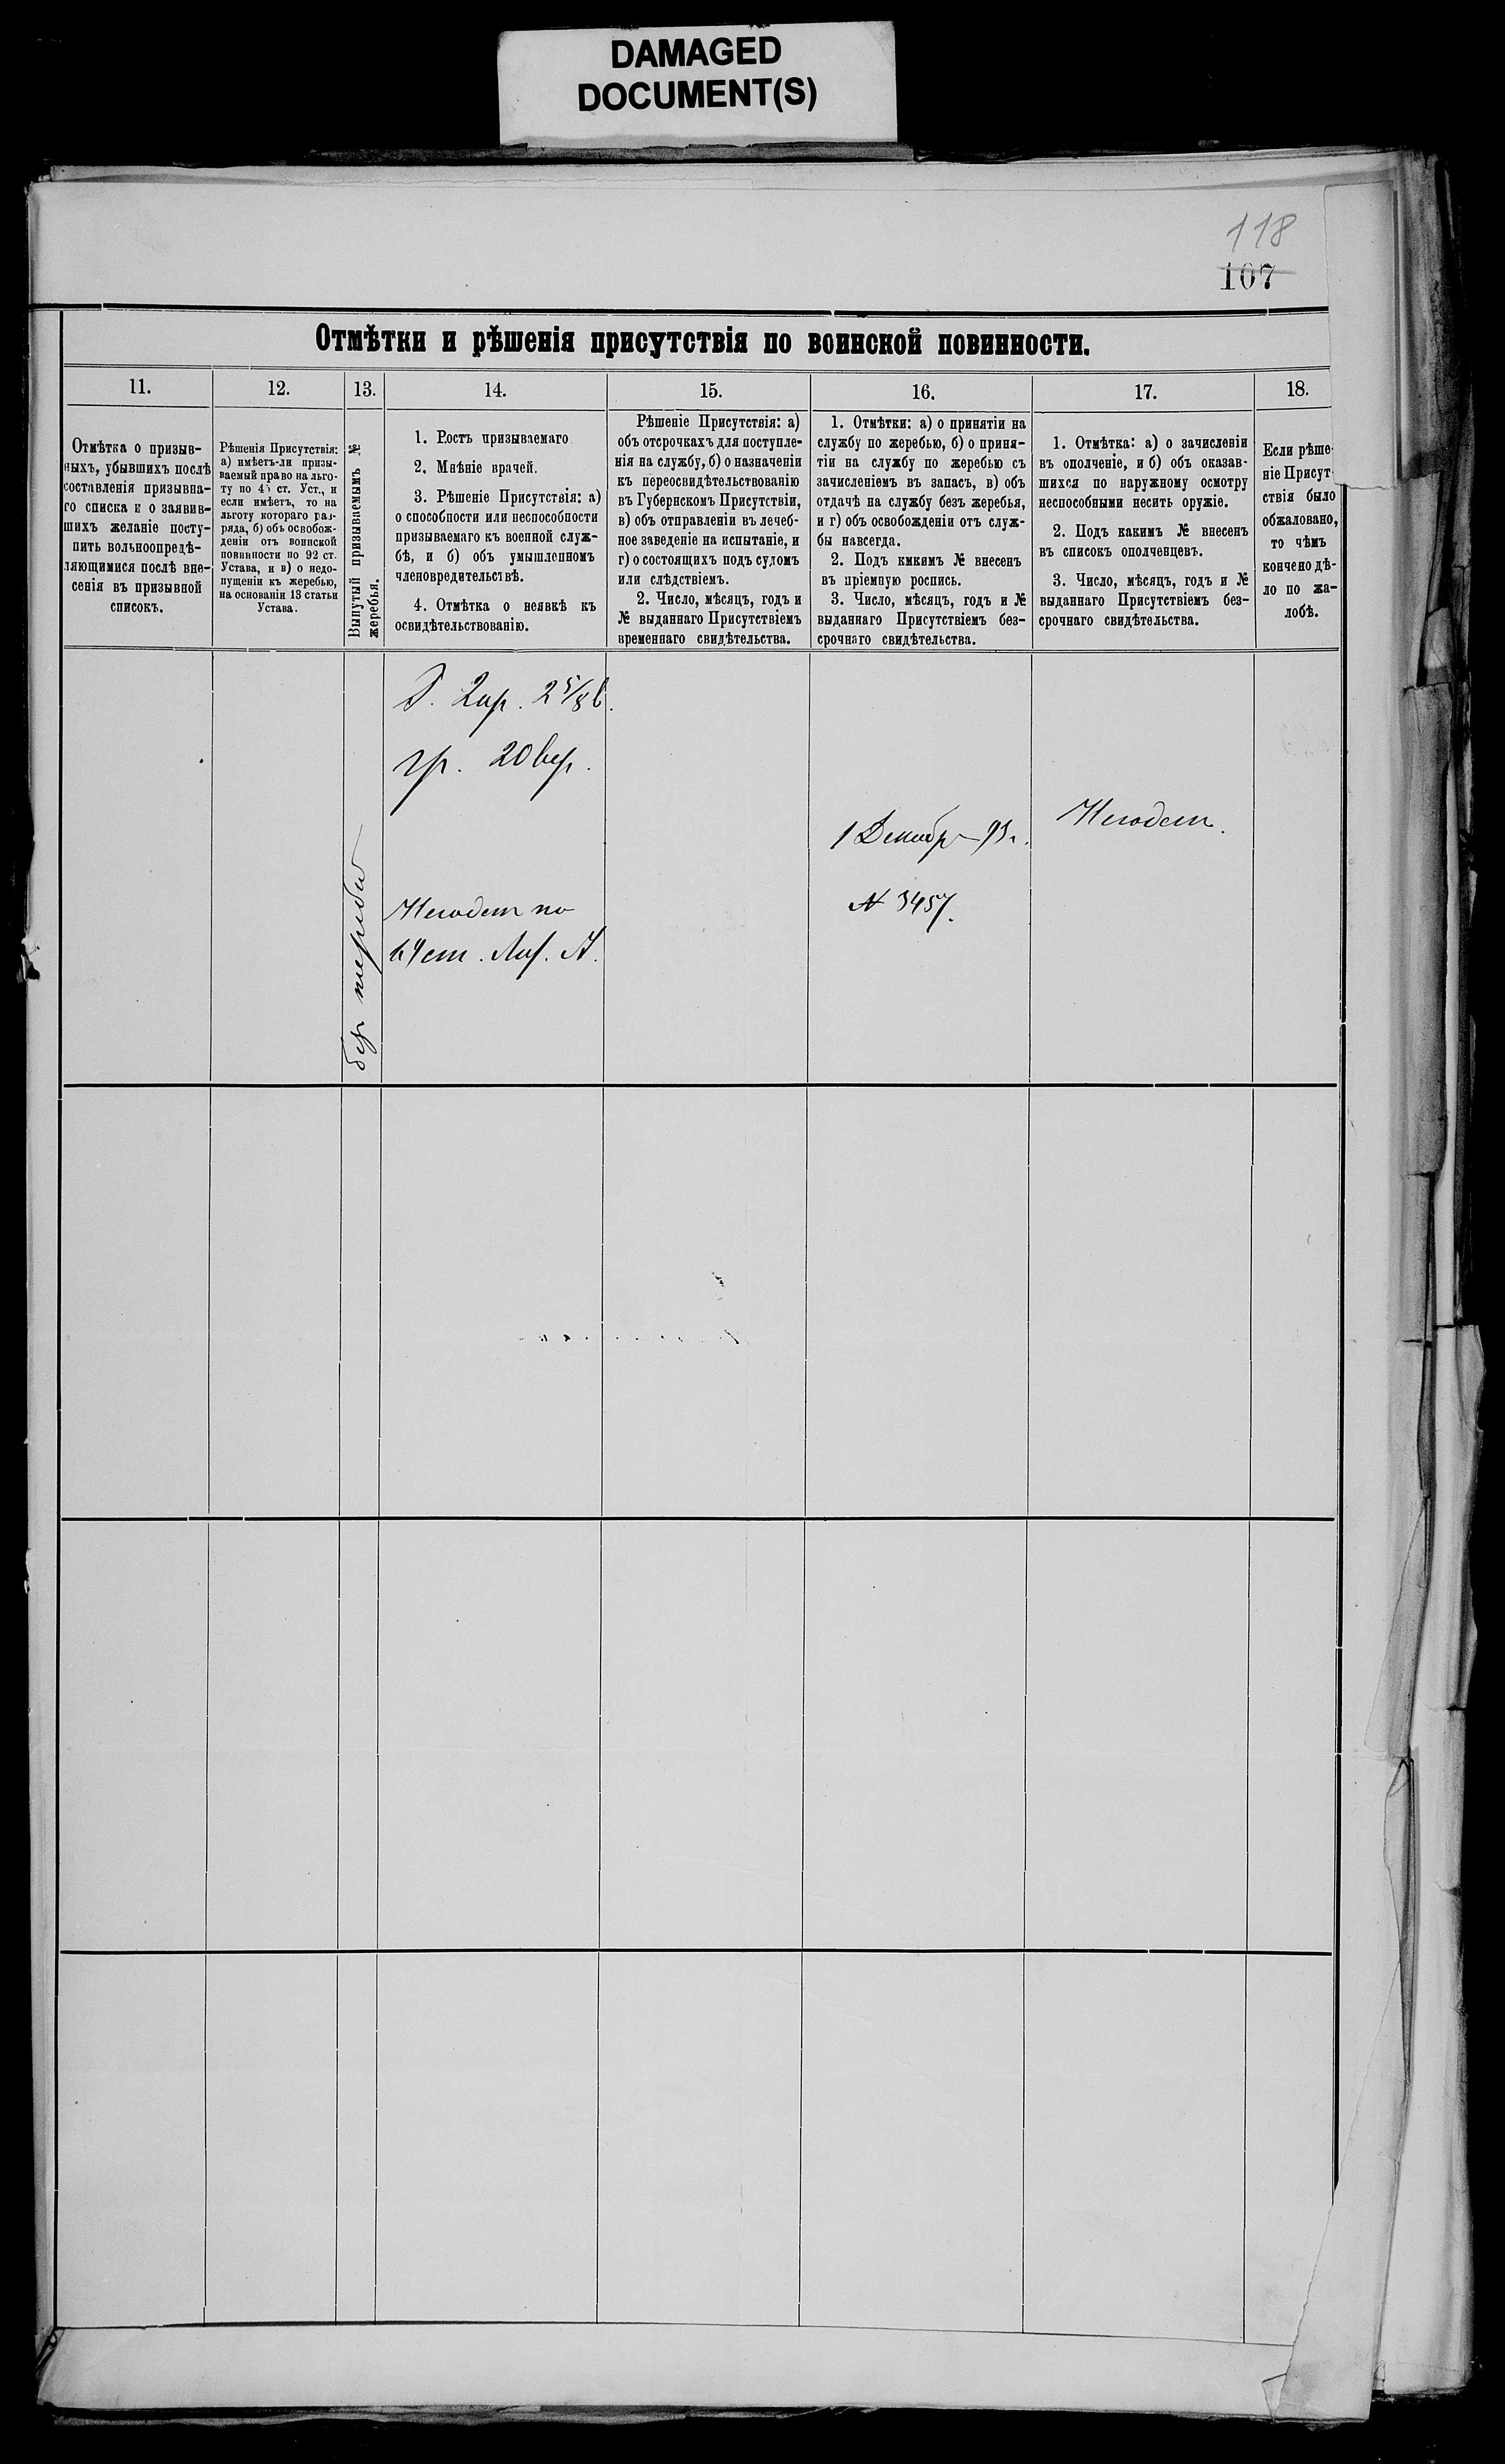 DAMAGED
DOCUMENT(S)
118
107
Отмѣтки и рѣшенія присутствія по воинской повинности.
11.
Отмѣтка о призыв-
ныхъ, убывшихъ послѣ
составленія призывна-
го списка и о заявив-
шихъ желаніе посту-
пить вольноопредѣ-
ляющимися послѣ вне-
сенія въ призывной
списокъ.
12.
Рѣшенія Присутствія:
а) имѣетъ-ли призы-
ваемый право на льго-
ту по 45 ст. Уст., и
если имѣетъ, то на
льготу котораго раз-
ряда, б) объ освобож-
деніи отъ воинской
повинности по 92 ст.
Устава, и в) о недо-
пущеніи къ жеребью,
на основаніи 13 статьи
Устава.
13.
Вынутый призываемымъ №
жеребья.
14.
1. Ростъ призываемаго
2. Мнѣніе врачей.
3. Рѣшеніе Присутствія: а)
о способности или неспособности
призываемаго къ военной служ-
бѣ, и б) объ умышленномъ
членовредительствѣ.
4. Отмѣтка о неявкѣ къ
освидѣтельствованію.
15.
Рѣшеніе Присутствія: а)
объ отсрочкахъ для поступле-
нія на службу, б) о назначеніи
къ переосвидѣтельствованію
въ Губернскомъ Присутствіи,
в) объ отправленіи въ лечеб-
ное заведеніе на испытаніе, и
г) о состоящихъ подъ судомъ
или слѣдствіемъ.
2. Число, мѣсяцъ, годъ и
№ выданнаго Присутствіемъ
временнаго свидѣтельства.
16.
1. Отмѣтки: а) о принятіи на
службу по жеребью, б) о приня-
тіи на службу по жеребью съ
зачисленіемъ въ запасъ, в) объ
отдачѣ на службу безъ жеребья,
и г) объ освобожденіи отъ служ-
бы навсегда.
2. Подъ кмкимъ № внесенъ
въ пріемную роспись.
3. Число, мѣсяцъ, годъ и №
выданнаго Присутствіемъ без-
срочнаго свидѣтельства.
17.
1. Отмѣтка: а) о зачисленіи
въ ополченіе, и б) объ оказав-
шихся по наружному осмотру
неспособными несить оружіе.
2. Подъ какимъ № внесенъ
въ списокъ ополченцевъ.
3. Число, мѣсяцъ, годъ и №
выданнаго Присутствіемъ без-
срочнаго свидѣтельства.
18.
Если рѣше-
ніе Присут-
ствія было
обжаловано,
то чѣмъ
кончено дѣ-
ло по жа-
лобѣ.
Р. 2 ар. 2 5/8 в.
гр. 20 вер.
Негоденъ по
Лит. А.
1 Декабр
№ 3457.
Негоденъ.